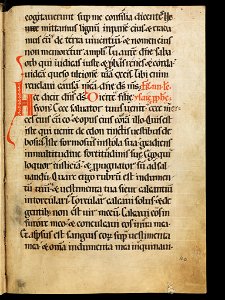 cogitaverunt sup me consilia dicentes Ve
nite mittamus lignū in panē eius et erada
mus eū de terra viventiū et nomen eius
non memoretur ampli. Tu autē dn̄e saba
oth qui iudicas iuste et p̄bas renes et corda
videā queso ultionē tuā ex eis. tibi enim
revelavi causā meā dn̄e ds ms.
Hec dicit dn̄s ds Dicite filie
syon. Ecce salvator tuus venit ecce mer
ces eius cū eo et opus eius corā illo. Quis est
iste qui venit de edom tinctis vestibus de
bosra iste formosus in stola sua gradiens
in multitudine fortitudinis sue. Ego qui
loquor iusticiā et ppugnator sū ad sal
vandū. Quare ergo rubrū est indumen
tū tuū et vestimenta tua sicut calcantiū
in torculari. Torcular calcavi solus et de
gentib; non est vir mecū. Calcavi eos in
furore meo et conculcavi eos in ira
mea. et aspersus est sanguis eor sup vestimenta
mea et omnia indumenta mea inquinavi.